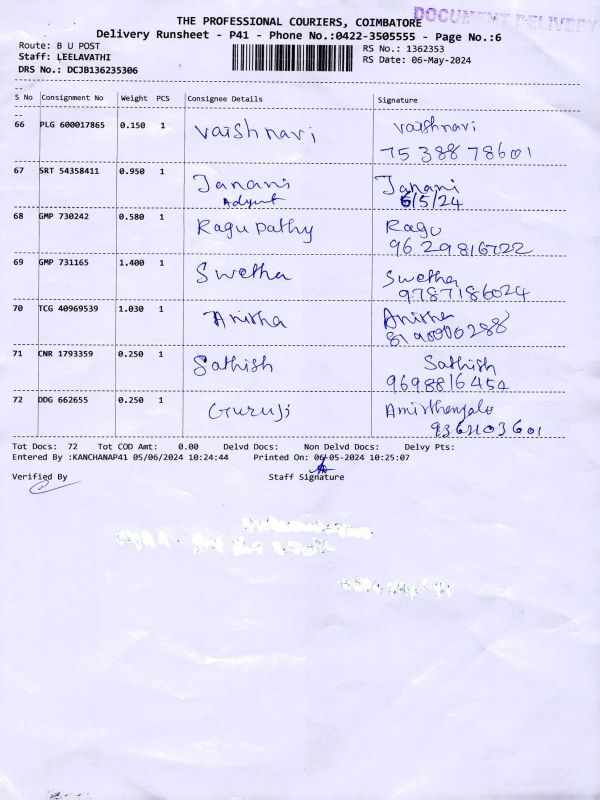 DOCUMENT DELIVERY
THE PROFESSIONAL COURIERS, COIMBATORE
Delivery Runsheet - P41 - Phone No.:0422-3505555 - Page No.:6
Route: B U POST
RS No.: 1362353
Staff: LEELAVATHI
RS Date: 06-May-2024
DRS No.: DCJB136235306
S No Consignment No Weight PCS Consignee Details Signature
66 PLG 600017865 0.150 1 Vaishnavi Vaishnavi
75388 78601
67 SRT 54358411 0.950 1 Janani Janani
6/5/24
68 GMP 730242 0.580 1 Ragupathy Ragu
69 GMP 731165 1.400 1 Swetha Swetha
9787186024
70 TCG 40969539 1.030 1 Anitha
71 CNR 1793359 0.250 1 Sathish Sathish
9698816454
72 DDG 662655 0.250 1 Guruji
Tot Docs: 72 Tot COD Amt: 0.00 Delvd Docs: Non Delvd Docs: Delvy Pts:
Entered By :KANCHANAP41 05/06/2024 10:24:44 Printed On: 06-05-2024 10:25:07
Verified By Staff Signature